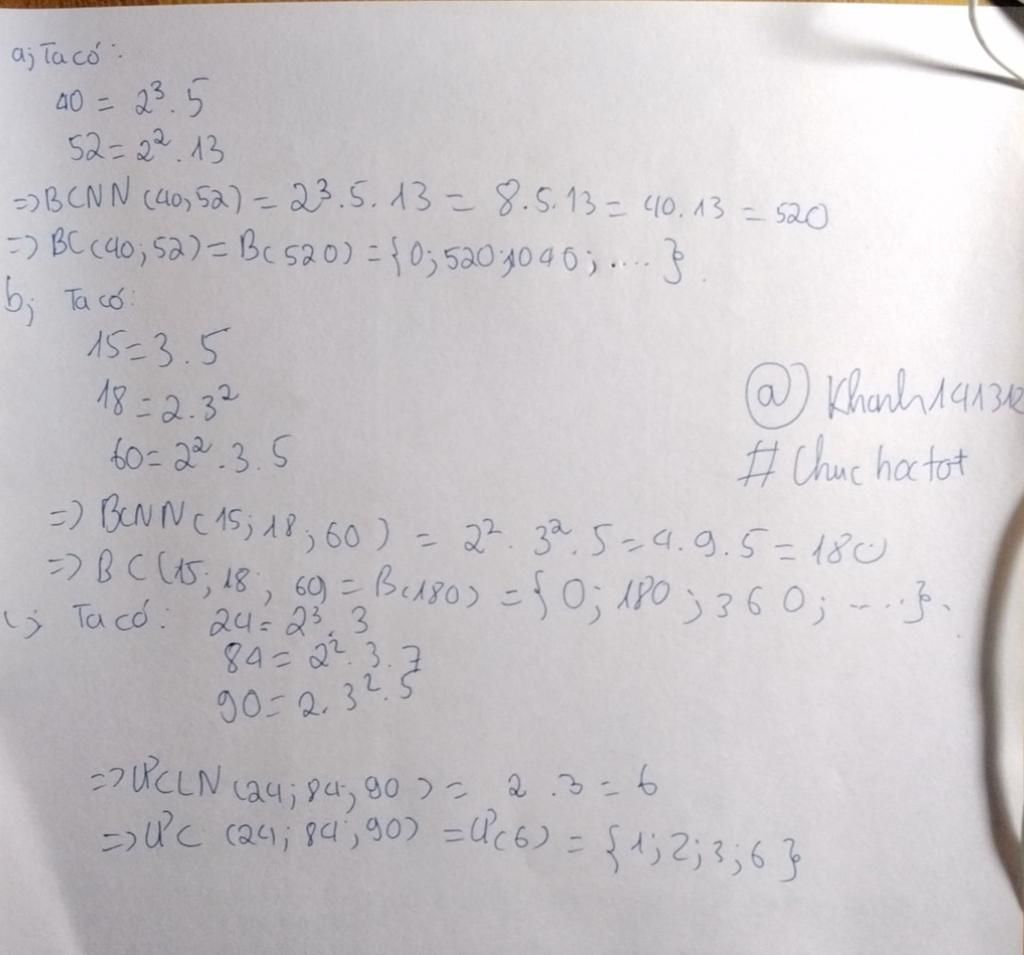 a; Ta có:
40 = 2³.5
52 = 2².13
=> BCNN (40,52) = 2³.5.13 = 8.5.13 = 40.13 = 520
=> BC (40;52) = B(520) = {0;520;1040;....}.
b; Ta có:
15 = 3.5
18 = 2.3²
60 = 2².3.5
@ Khanh141312
# Chuc hoc tot
=> BCNN (15;18;60) = 2².3².5 = 4.9.5 = 180
=> BC (15;18;60) = B(180) = {0;180;360;....}.
c; Ta có: 24 = 2³.3
84 = 2².3.7
90 = 2.3².5
=> ƯCLN (24;84;90) = 2.3 = 6
=> ƯC (24;84;90) = Ư(6) = {1;2;3;6}